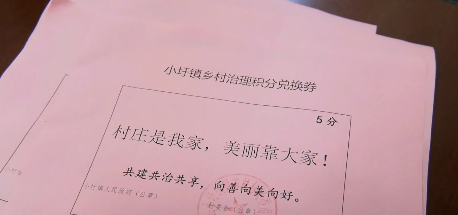 小圩镇乡村治理积分兑换券
5分
村庄是我家，美丽靠大家！
共建共治共享，向善向美向好。
小圩镇人民政府（公章）